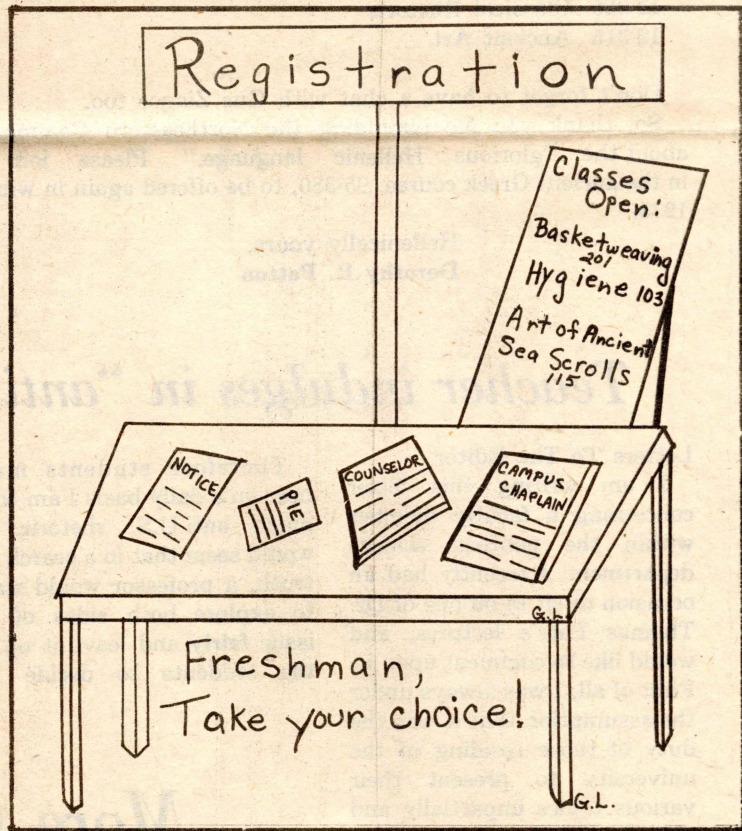 Registration
Classes
Open:
Basketweaving
201
Hygiene 103
Art of Ancient
Sea Scrolls
115
NOTICE
PIE
COUNSELOR
CAMPUS
CHAPLAIN
G.L.
Freshman,
Take your choice!
G.L.